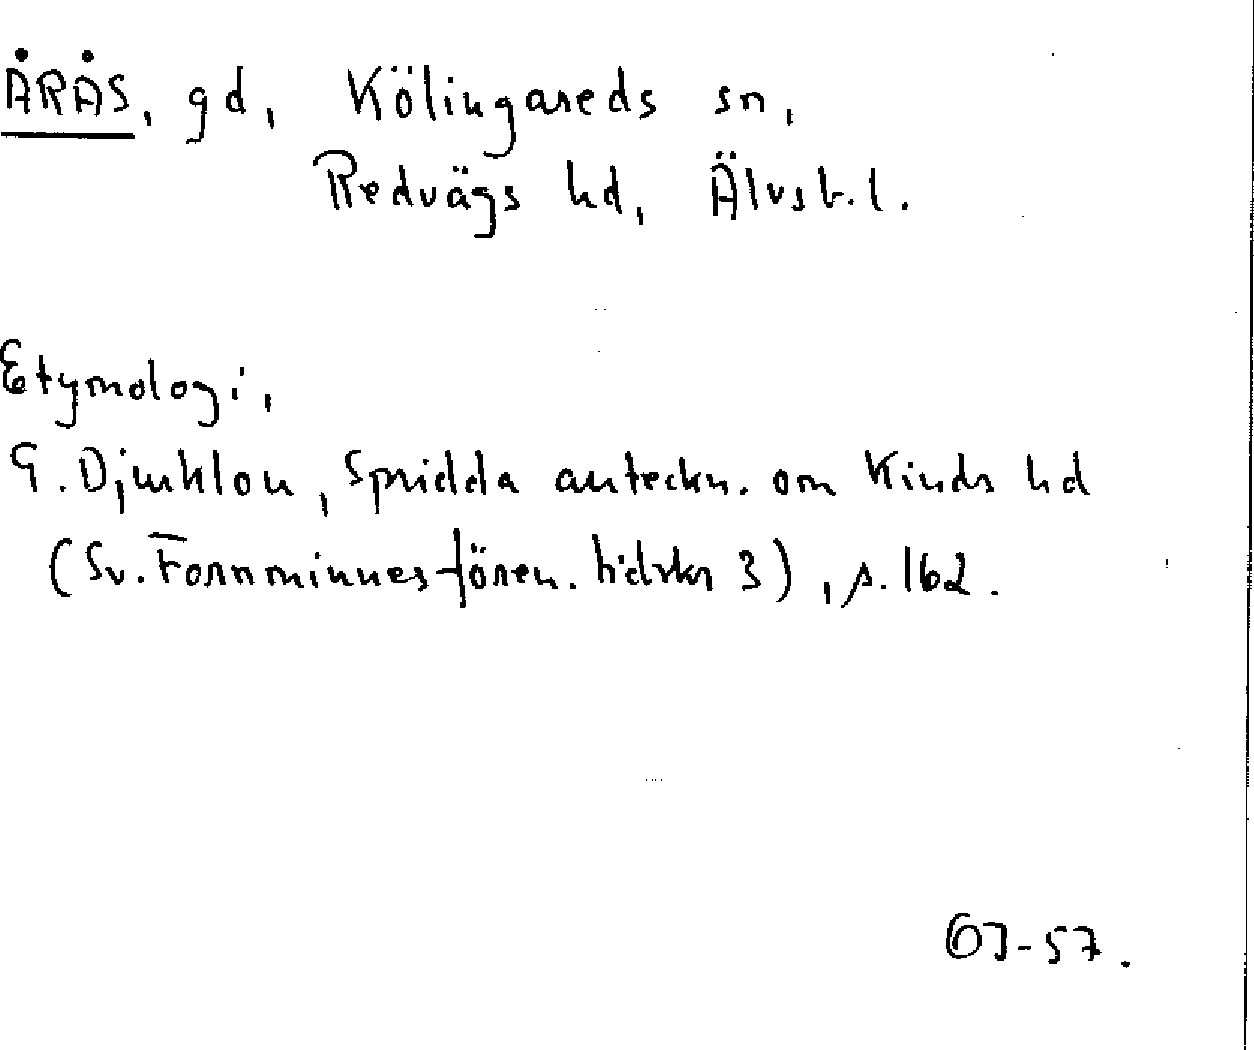 ÅRÅS, gd, Kölingareds sn,
Redvägs hd, Älvsb. l.
Etymologi,
G. Djurklou, Spridda anteckn. om Kinds hd
(Sv. Fornminnesfören. tidskr 3), s. 162.
ÖJ-57.